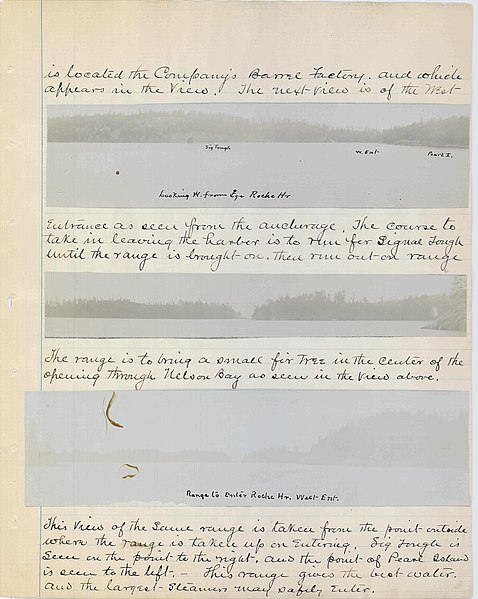 is located the Company's Barrel Factory. and which
appears in the View. The next view is of the West
Sig Tough
W. Ent
Pearl I.
Looking W. from Ege Roche Hr
Entrance as seen from the anchorage. The course to
take in leaving the harbor is to run for Signal Tough
until the range is brought on. Then run out on range
The range is to bring a small fir Tree in the center of the
opening through Nelson Bay as seen in the View above.
Range to Enter Roche Hr. West Ent.
This View of the Same range is taken from the point outside
where the range is taken up on Entering. Sig Tough is
Seen on the point to the right. and the point of Pearl Island
is seen to the left. — This range gives the best water.
and the largest Steamers may safely Enter.